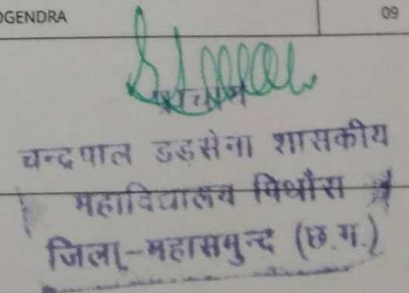 OGENDRA 09
प्राचार्य
चन्द्रपाल डड़सेना शासकीय
महाविद्यालय पिथौरा
जिला-महासमुन्द (छ.ग.)